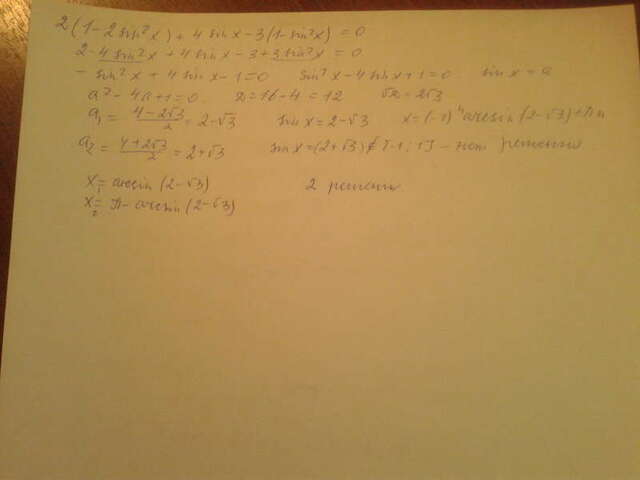 2(1-2sin²x)+4sinx-3(1-sin²x)=0
2-4sin²x+4sinx-3+3sin²x=0
-sin²x+4sinx-1=0 sin²x-4sinx+1=0. sinx=a
a²-4a+1=0. D=16-4=12 √D=2√3
a₁=(4-2√3)/2=2-√3 sinx=2-√3 x=(-1)ⁿarcsin(2-√3)+πn
a₂=(4+2√3)/2=2+√3 sinx=(2+√3)∉[-1;1]-нет решения
x₁=arcsin(2-√3) 2 решения
x₂=π-arcsin(2-√3)